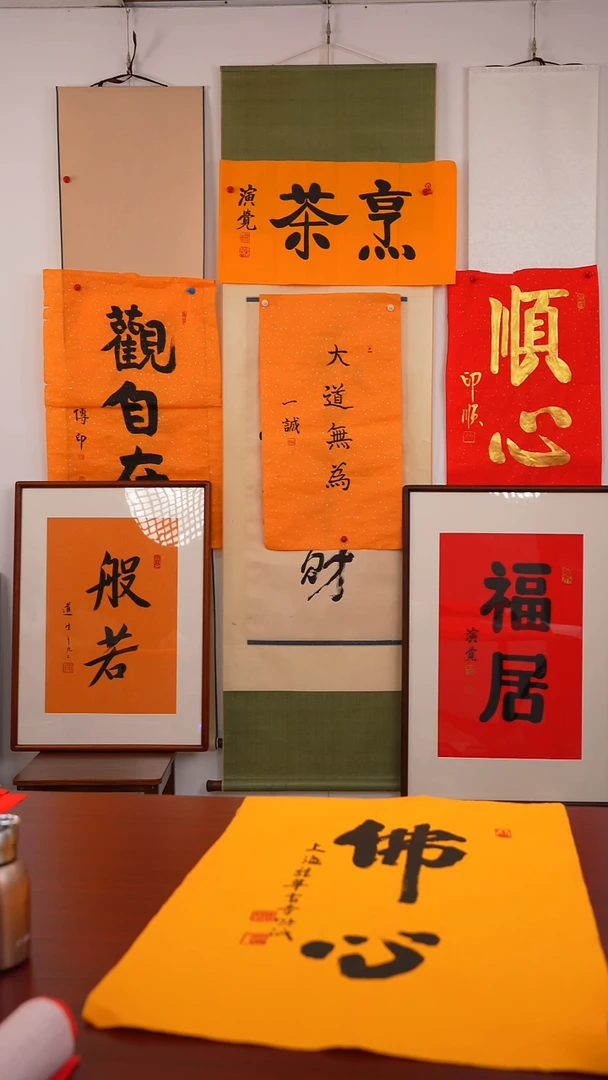 烹茶
演覺
觀自在
傳印
大道無為
一誠
順心
印順
財
般若
福居
演覺
佛心
上海龍華古寺